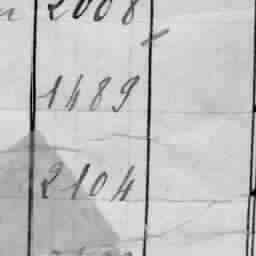 2008
1489
2104